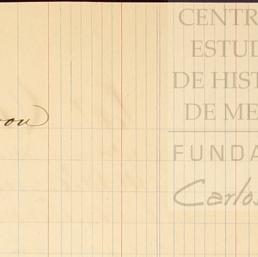 CENTR
ESTUD
DE HIST
DE ME
FUNDA
Carlos